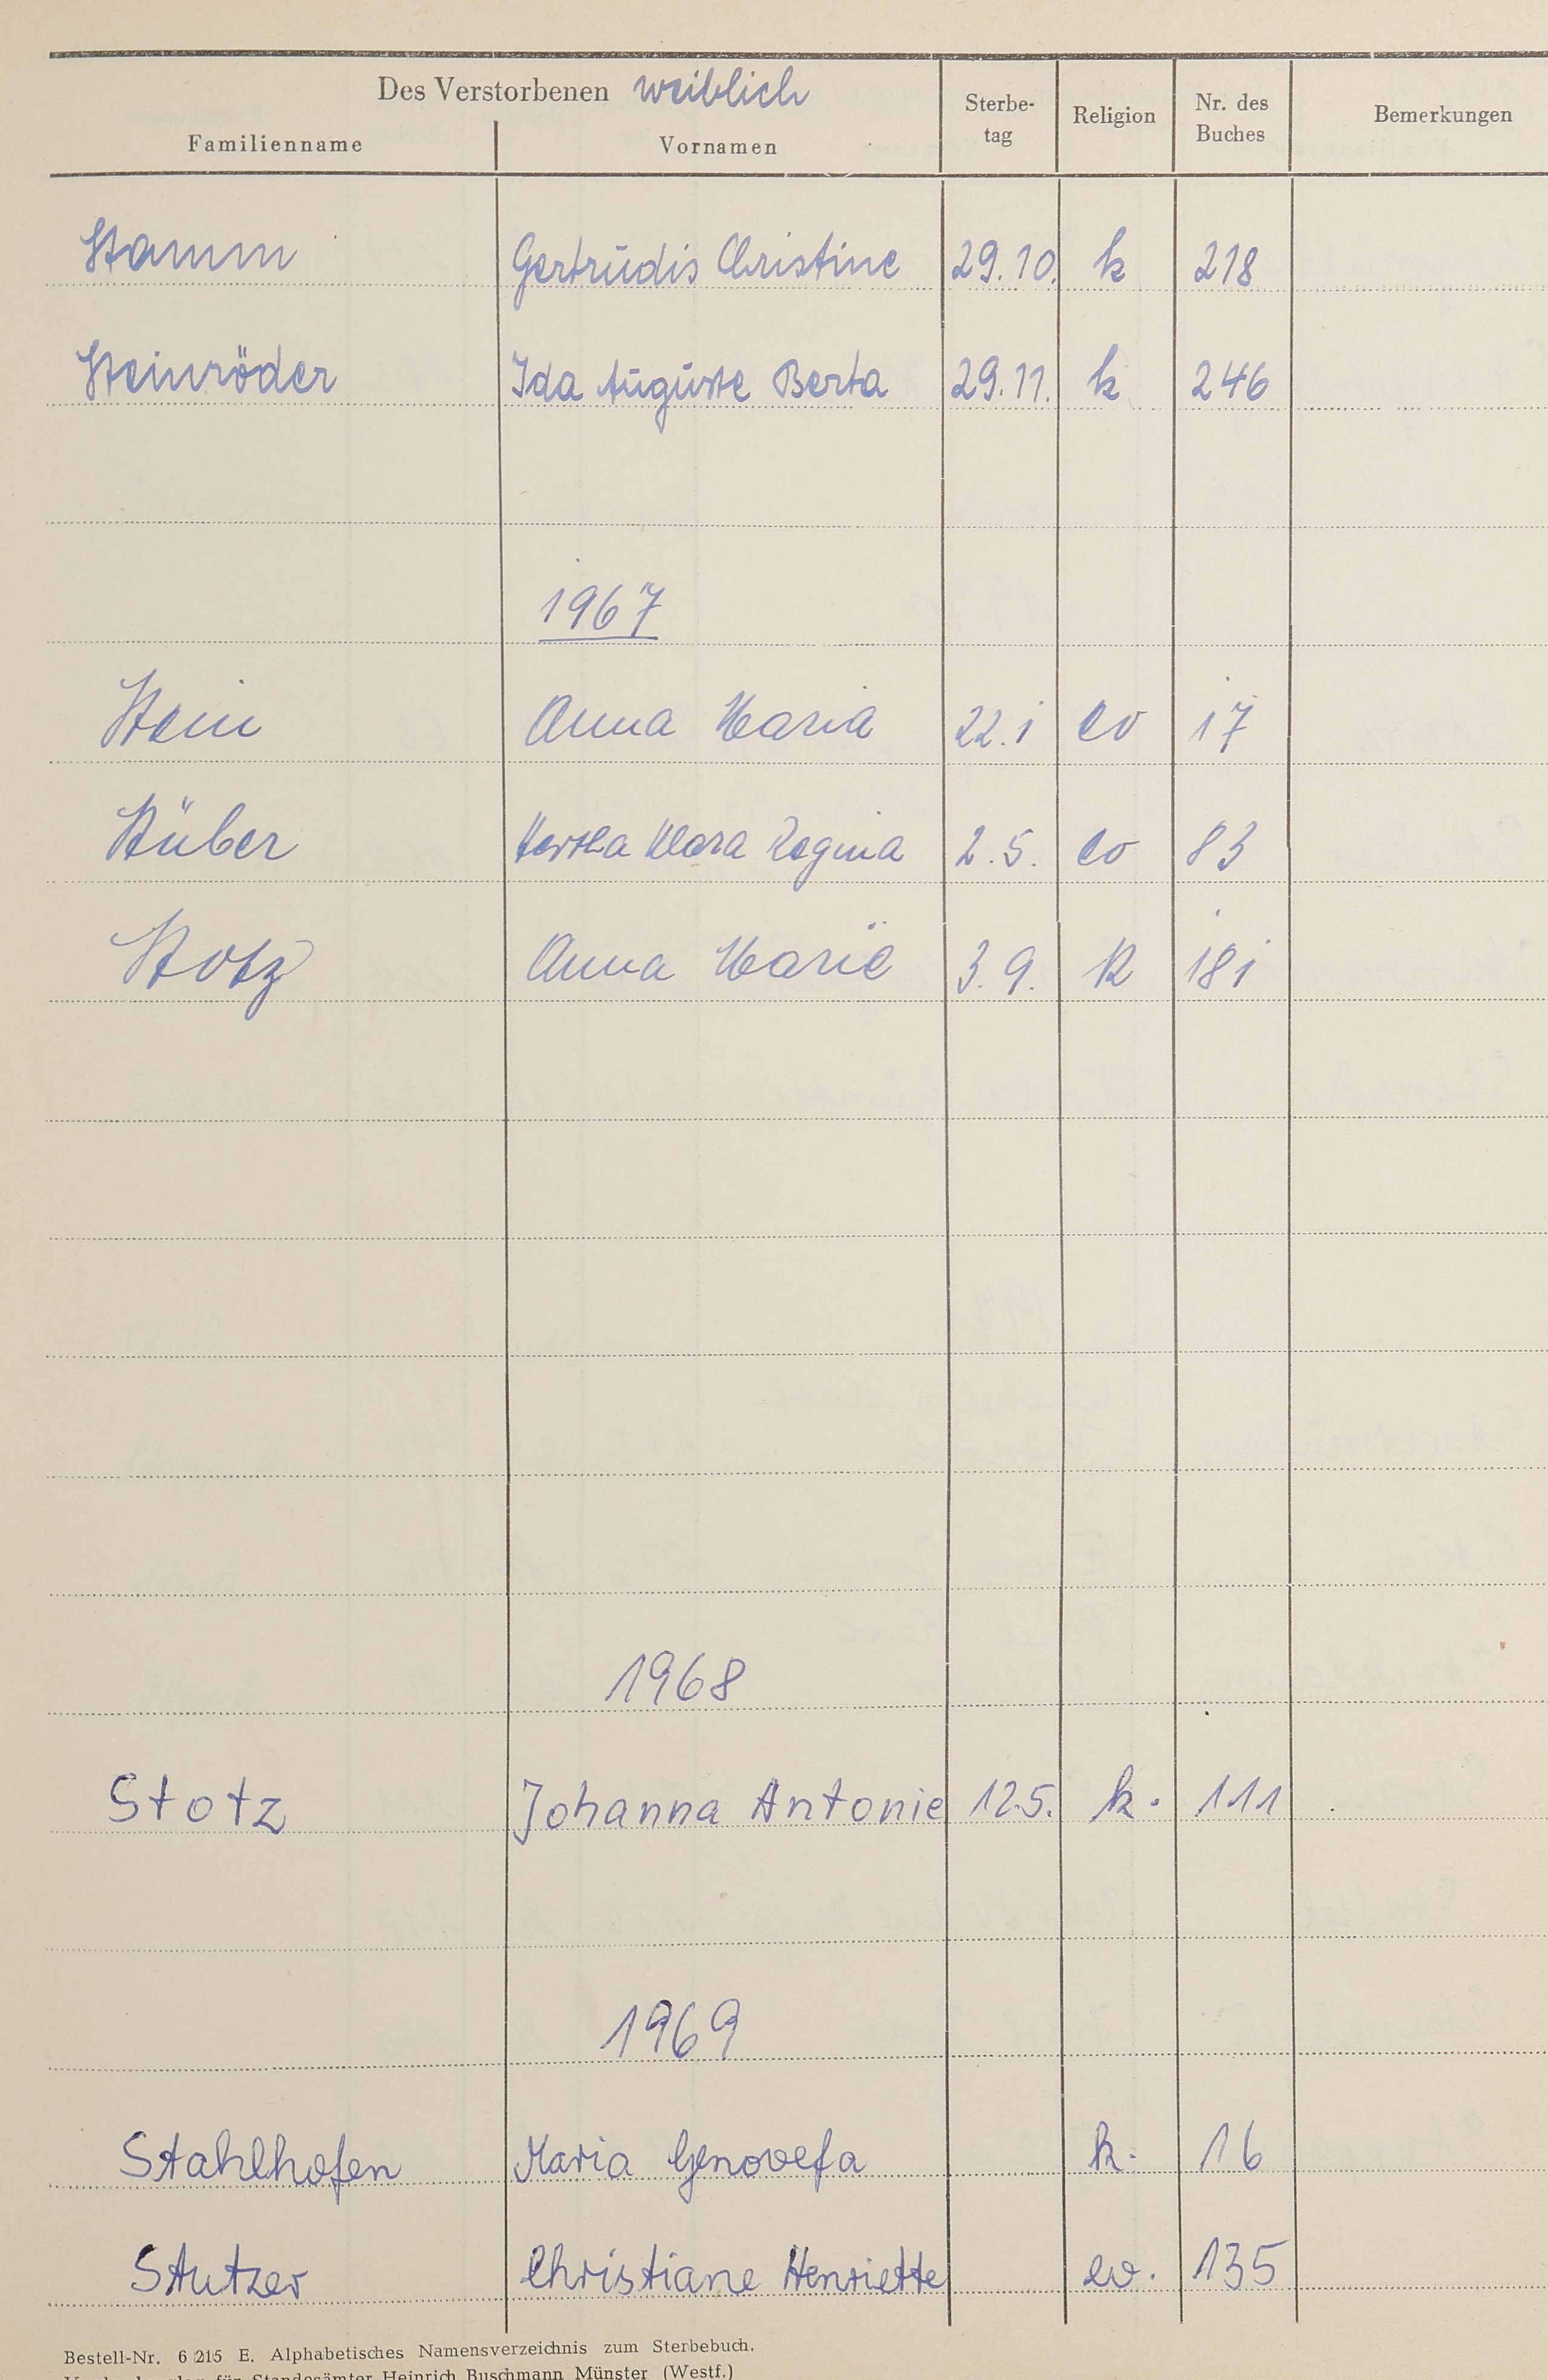 Des Verstorbenen weiblich
Familienname Vornamen Sterbe-tag Religion Nr. des Buches Bemerkungen
Stamm Gertrudis Christine 29.10. k 218
Steinröder Ida Auguste Berta 29.11. k 246
1967
Stein Anna Maria 22.1 ev 17
Stüber Hertha Klara Regina 2.5. ev 83
Stotz Anna Marie 3.9. K 181
1968
Stotz Johanna Antonie 12.5. k. 111
1969
Stahlhofen Maria Genovefa k. 16
Stutzer Christiane Henriette ev. 135
Bestell-Nr. 6 215 E. Alphabetisches Namensverzeichnis zum Sterbebuch.
für Standesämter Heinrich Buschmann Münster (Westf.)